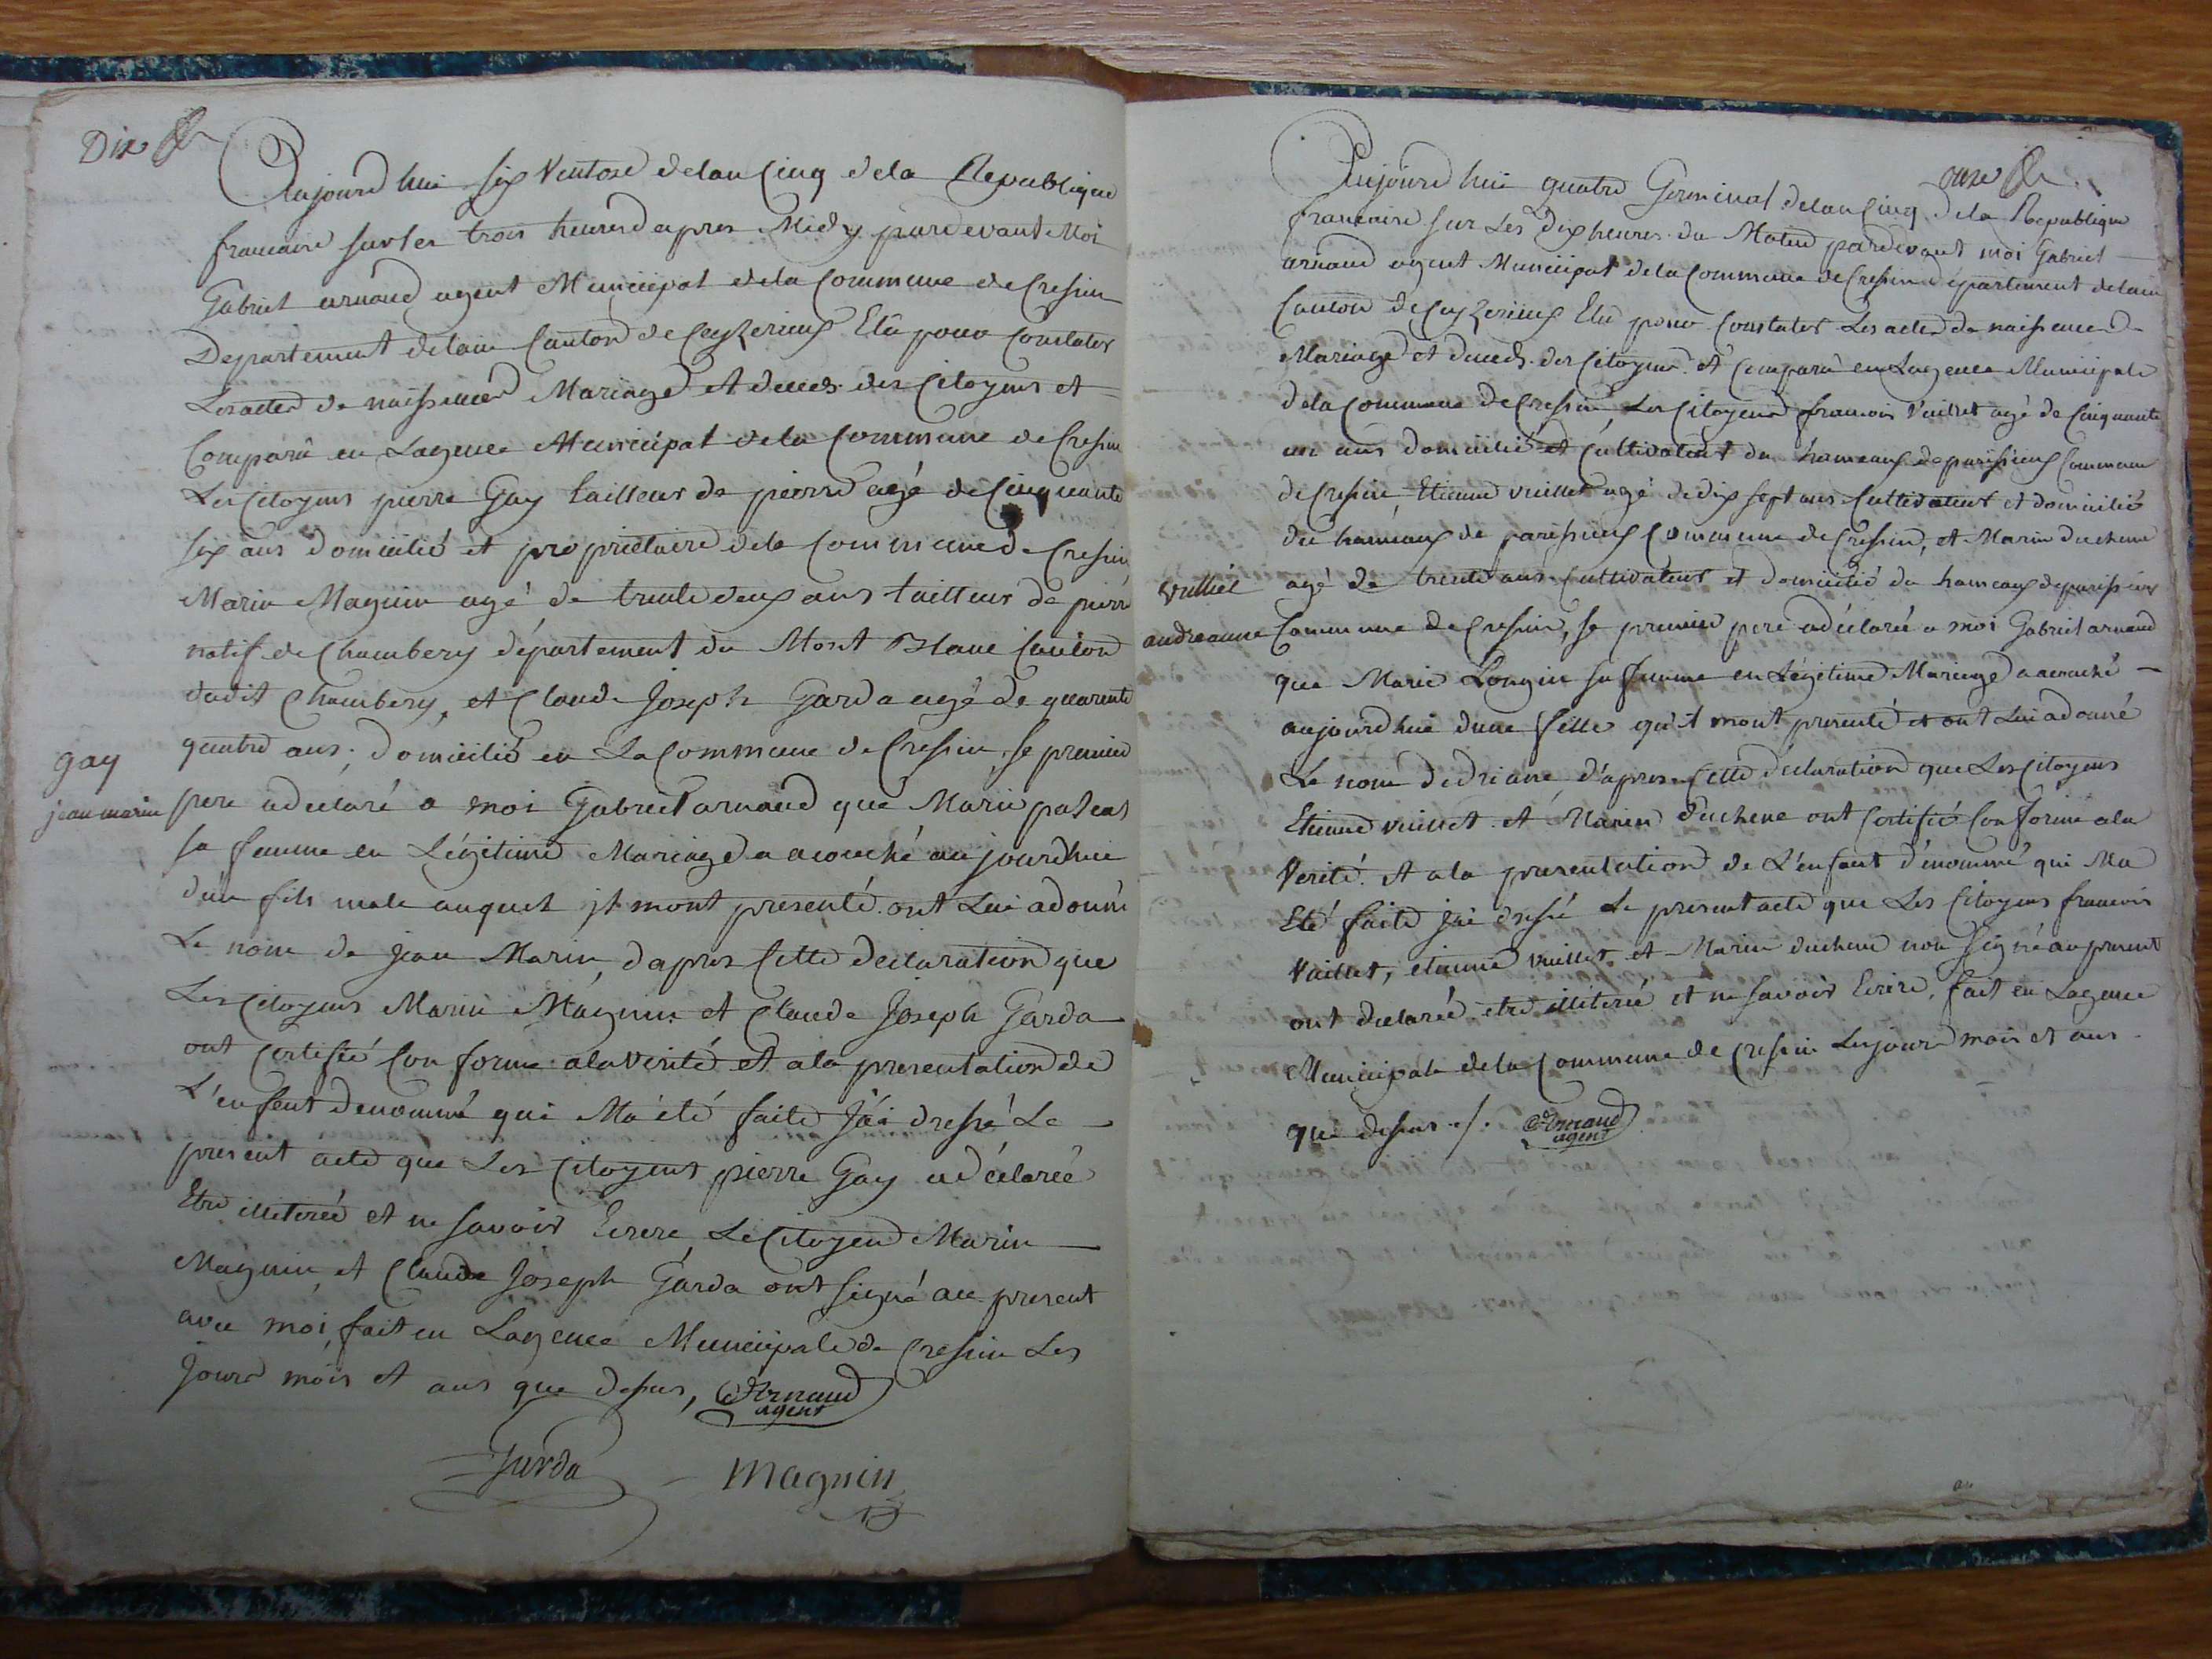 Dix
Aujourd hui six Ventose delan Cinq dela Republique
francaise surles trois heures dapres Midy pardevant Moi
Gabriel arnaud agent Municipal dela Commune de Cressin
Departement delain Canton de Ceyzerieux Elû pour Constater
Les actes de naissances Mariage et deces des Citoyens et
Comparû en Lagence Municipal dela Commune de Cressin
Les Citoyens pierre Gay tailleur de pierre agé de Cinquante
six ans domicilié et proprietaire dela Commune de Cressin
Marin Magnin agé de trente deux ans tailleur de pierre
natif de Chambery département du Mont Blanc Canton
dudit Chambery, et Claude Joseph Garda agé de quarente
quatre ans, domicilié en La Commune de Cressin, se premier
gay
jean marin
pere a declaré a moi Gabriel arnaud que Marie
sa femme en Légitime Mariage a acouché aujourdhui
d'un fils male auquel jl mont presenté ont Lui adonné
Le nom de jean Marin, dapres Cette declaration que
Les Citoyens Marin Magnin et Claude Joseph Garda
ont Certifié Conforme ala verité et ala presentation de
L'enfent denommé qui Ma été faite J'ai dressé Le
present acte que Les Citoyens pierre Gay a déclareé
Etre illiterée et ne savoir Ecrire, Le Citoyen Marin
Magnin, et Claude Joseph Garda ont signé au present
avec moi, fait en Lagence Municipale de Cressin Les
jours mois et ans que dessus, Arnaud
agent
Garda Magnin
onze
Aujourd hui quatre Germinal delan Cinq dela Republique
francaise sur Les dix heures du Matin pardevant moi Gabriel
arnaud agent Municipal dela Commune de Cressin département delain
Canton de Ceyzerieux Elû pour Constater Les actes de naissence de
Mariage et deces des Citoyens et Comparû en Lagence Municipale
dela Commune de Cressin, Les Citoyens francois Vuillet agé de Cinquante
un ans domicilié et Cultivateur du hameaux de parissieux Commune
de Cressin, Etienne vuillet agé de dix sept ans Cultivateur et domicilié
du hameaux de parissieux Commune de Cressin, et Marin duchene
vulliet
andreanne
agé de trente ans Cultivateur et domicilié du hameaux de parissieux
Commune de Cressin, se premier pere a déclarée a moi Gabriel arnaud
que Marie Longin sa femme en Légitime Mariage a acouché
aujourdhui dune fille qu'il mont presenté et ont Lui adonné
Le nom dedriane, d'apres Cette déclaration que Les Citoyens
Etienne vuillet et Marin duchene ont Certifié Conforme ala
Verité et ala presentation de L'enfant dénommé qui Ma
Eté faite jai dressé Le present acte que Les Citoyens francois
Vuillet, etienne vuillet et Marin duchene non signé au present
ont declareé etre illiterée et ne savoir Ecrire, fait en Lagence
Municipale dela Commune de Cressin Les jours mois et ans
que dessus ./. Arnaud
agent